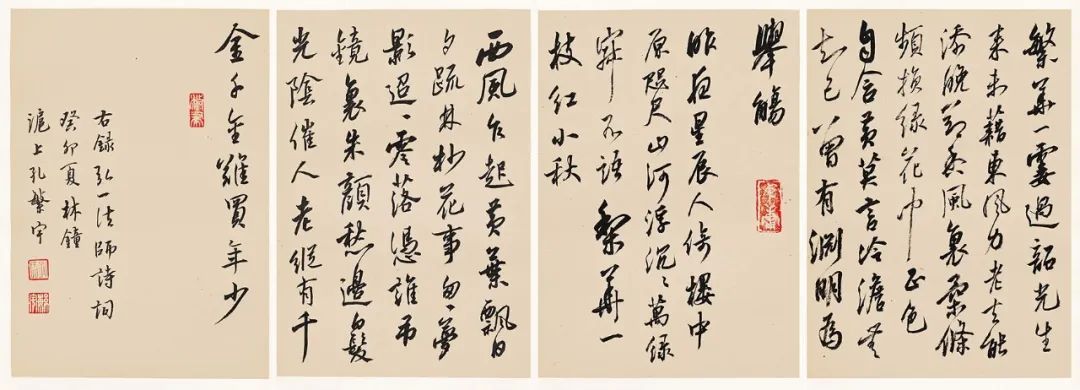 繁華一霎過韶光生
來未藉東風力老去能
添晚節香風裏柔條
頻損綠花中正色
自含黃莫言冷澹無
知己曾有淵明為
舉觴
昨夜星辰人倚樓中
原咫尺山河浮沉〻萬綠
寂不語梨華一
枝紅小秋
西風乍起黃葉飄日
夕疏林杪花事匆〻夢
影迢〻零落憑誰吊
鏡裏朱顏愁邊白髮
光陰催人老縱有千
金千金難買年少
右録弘一法師詩詞
癸卯夏林鐘
滬上孔繁宇